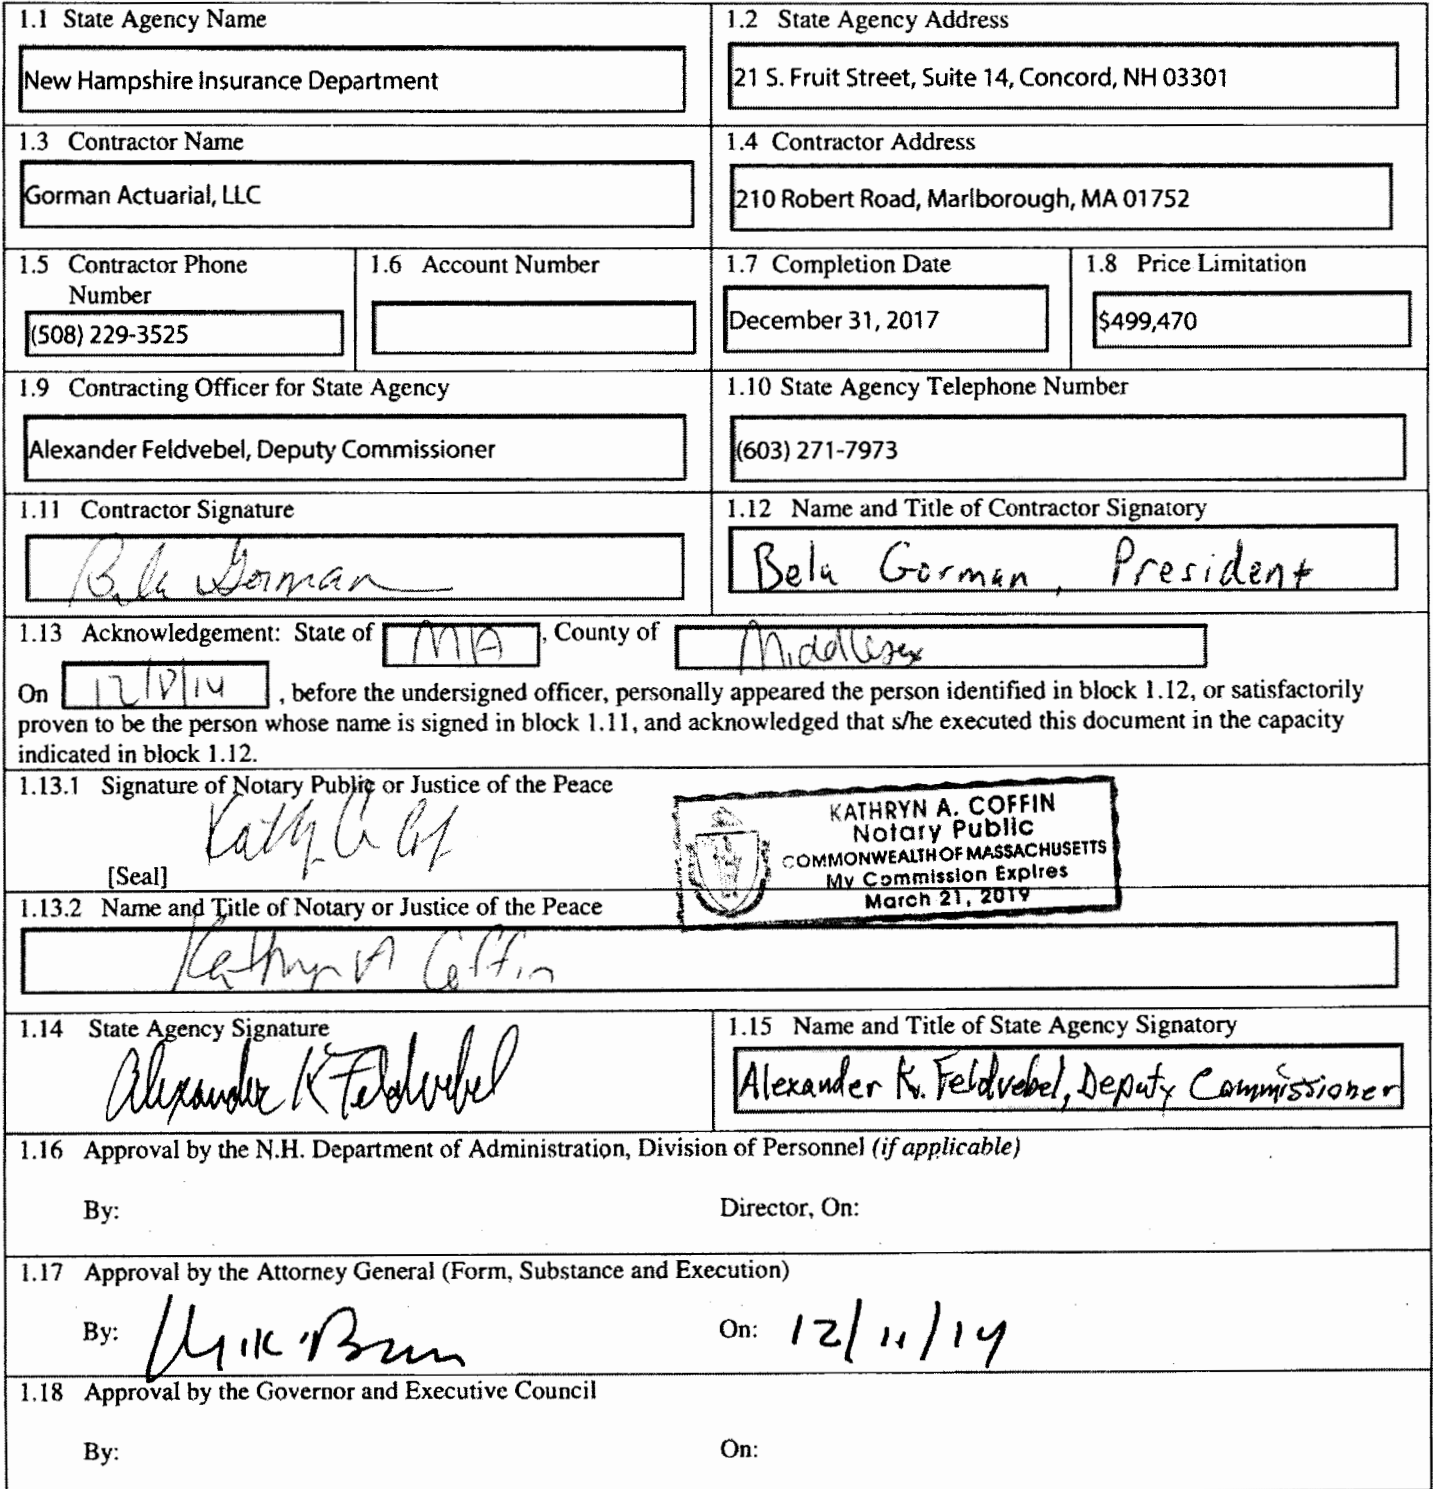 1.1 State Agency Name
New Hampshire Insurance Department
1.2 State Agency Address
21 S. Fruit Street, Suite 14, Concord, NH 03301
1.3 Contractor Name
Gorman Actuarial, LLC
1.4 Contractor Address
210 Robert Road, Marlborough, MA 01752
1.5 Contractor Phone
Number
(508) 229-3525
1.6 Account Number
1.7 Completion Date
December 31, 2017
1.8 Price Limitation
$499,470
1.9 Contracting Officer for State Agency
Alexander Feldvebel, Deputy Commissioner
1.10 State Agency Telephone Number
(603) 271-7973
1.11 Contractor Signature
Bela Gorman
1.12 Name and Title of Contractor Signatory
Bela Gorman, President
1.13 Acknowledgement: State of MA, County of Middlesex
On , before the undersigned officer, personally appeared the person identified in block 1.12, or satisfactorily
proven to be the person whose name is signed in block 1.11, and acknowledged that s/he executed this document in the capacity
indicated in block 1.12.
1.13.1 Signature of Notary Public or Justice of the Peace
[Seal]
KATHRYN A. COFFIN
Notary Public
COMMONWEALTH OF MASSACHUSETTS
My Commission Expires
March 21, 2019
1.13.2 Name and Title of Notary or Justice of the Peace
Kathryn A Coffin
1.14 State Agency Signature
Alexander K Feldvebel
1.15 Name and Title of State Agency Signatory
Alexander K. Feldvebel, Deputy Commissioner
1.16 Approval by the N.H. Department of Administration, Division of Personnel (if applicable)
By:
Director, On:
1.17 Approval by the Attorney General (Form, Substance and Execution)
By:
On: 12/11/14
1.18 Approval by the Governor and Executive Council
By:
On: